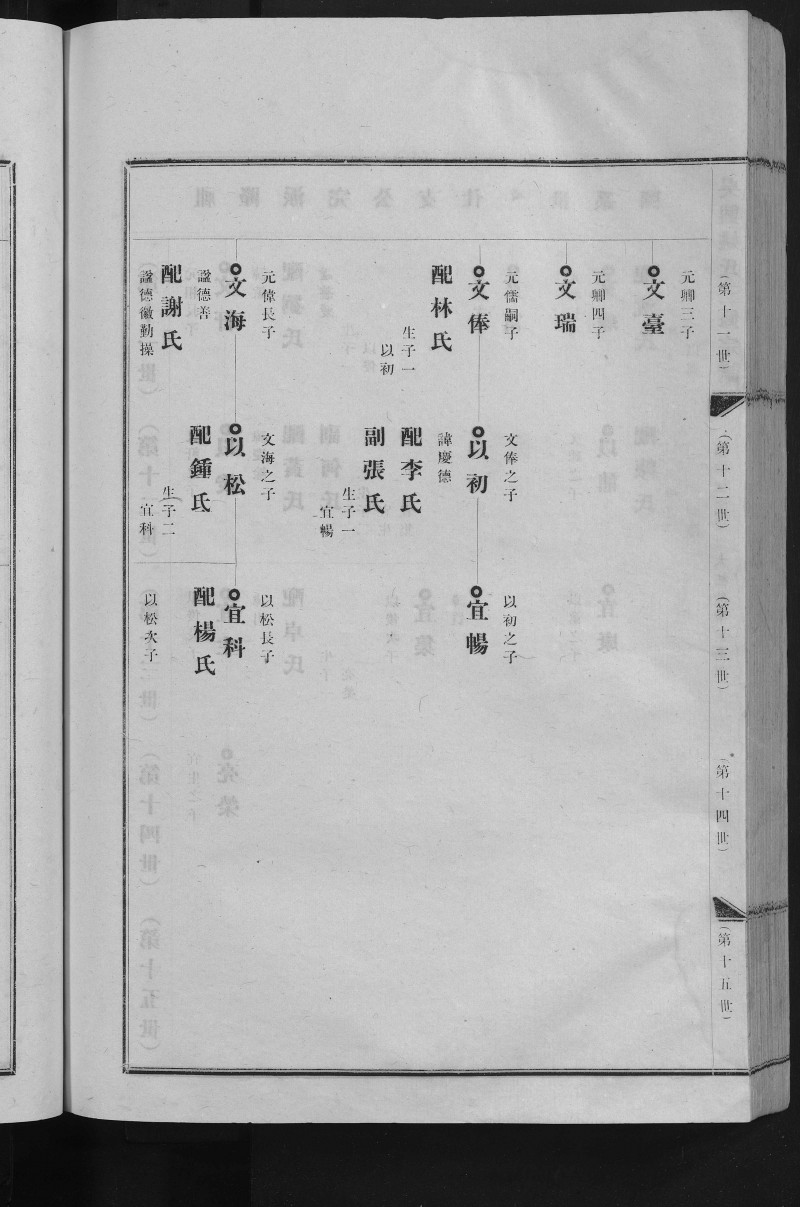 （第十一世）
元卿三子
文臺
元卿四子
文瑞
元儒嗣子
文俸
配林氏
生子一
以初
元偉長子
文海
諡德善
配謝氏
諡德徽勤操
（第十二世）
文俸之子
以初
諱慶德
配李氏
副張氏
生子一
宜暢
文海之子
以松
配鍾氏
生子二
宜科
（第十三世）
以初之子
宜暢
以松長子
宜科
配楊氏
以松次子
（第十四世）
（第十五世）